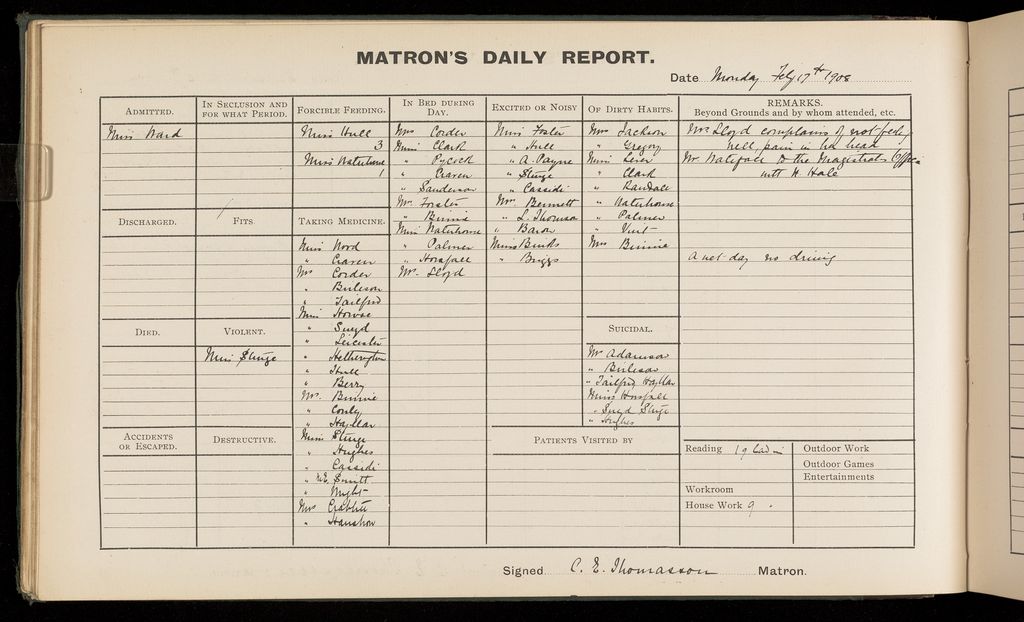 MATRON'S DAILY REPORT.
Date Monday Feby 17th 1908
ADMITTED.
Miss Ward
DISCHARGED.
DIED.
ACCIDENTS
OR ESCAPED.
IN SECLUSION AND
FOR WHAT PERIOD.
FITS
VIOLENT.
Miss Sturge
DESTRUCTIVE.
FORCIBLE FEEDING.
Miss Hull
3
Miss Waterhouse
1
TAKING MEDICINE.
Miss Word
" Craven
Mrs Corder
" Burleson
" Tailford
Miss Howse
" Sneyd
" Leicester
" Hetherington
" Hull
" Berry
Mrs. Binnie
" Conly
" Hayllar
Miss Sturge
" Hughes
" Cassidi
" Smith
" Wright
Mrs Crabtree
"
IN BED DURING
DAY.
Mrs Corder
Miss Clark
" Pycock
" Craven
" Sanderson
Mrs. Forster
" Binnie
Miss Waterhouse
" Palmer
" Horsfall
Mrs. Lloyd
EXCITED OR NOISY
Miss Foster
" Hull
" A. Payne
" Sturge
" Cassidi
Mrs. Bennett
" L. Thomson
" Baron
Miss Burks
" Briggs
OF DIRTY HABITS.
Mrs Jackson
" Gregory
Miss Lever
" Clark
" Randall
" Waterhouse
" Palmer
" Vint
Mrs Binnie
SUICIDAL.
Mrs Adamson
" Burleson
" Tailford Hayllar
Miss Horsfall
" Sneyd Sturge
" Hughes
PATIENTS VISITED BY
REMARKS.
Beyond Grounds and by whom attended, etc.
Mrs Lloyd complains of not feeling
well, pain in her head
to the Magistrates Office
with N. Hale
A wet day no driving
Reading 19 Ladies
Workroom
House Work 9.
Outdoor Work
Outdoor Games
Entertainments
Signed C. E. Thomasson Matron.